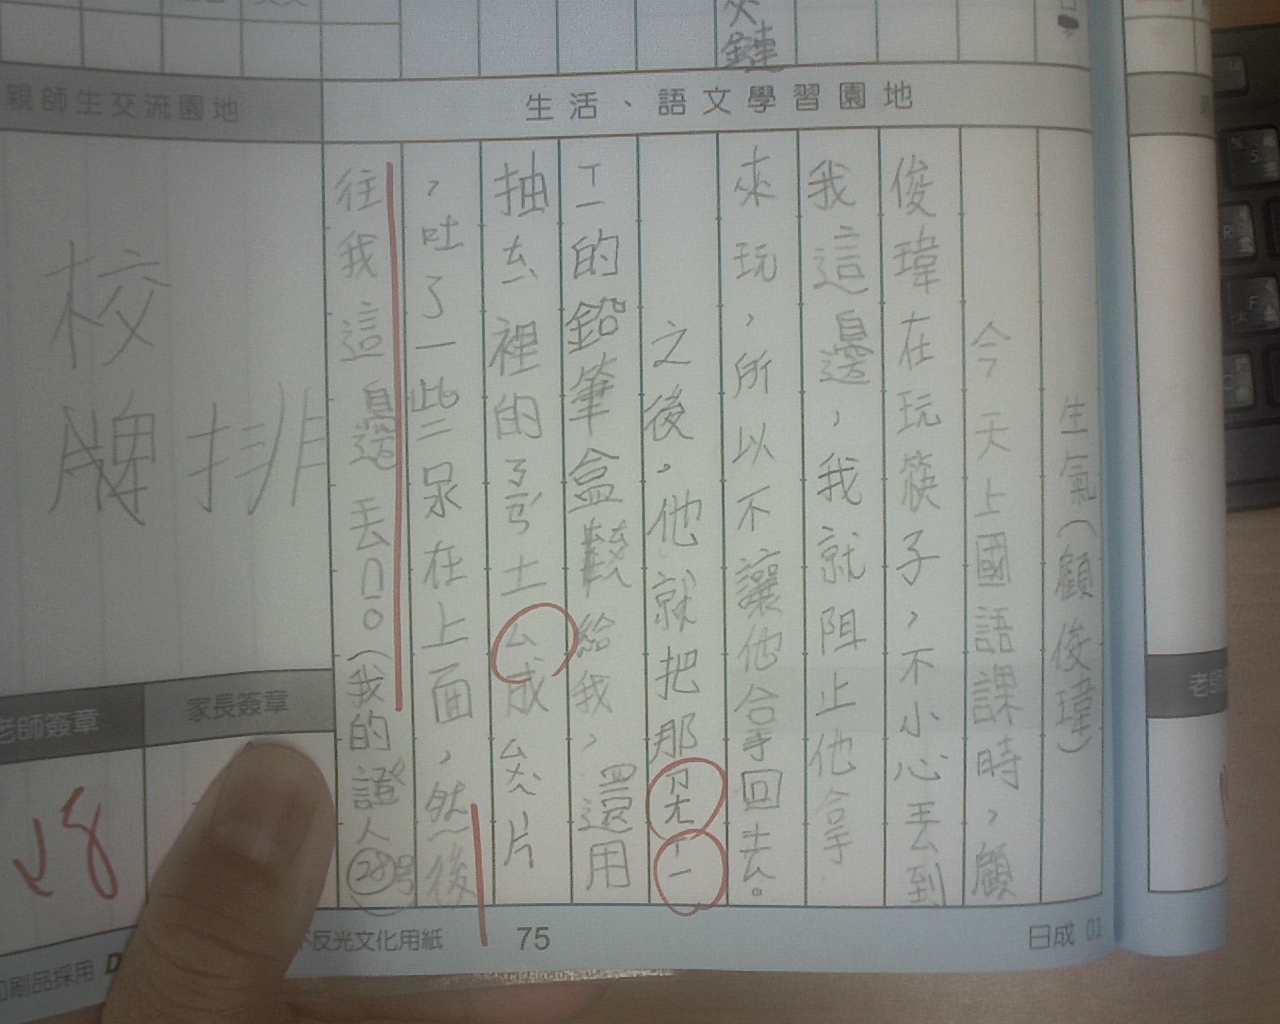 夾
鏈
生活、語文學習園地
生氣(顧俊瑋)
今天上國語課時,顧
俊瑋在玩筷子,不小心丟到
我這邊,我就阻止他拿
來玩,所以不讓他拿回去。
之後,他就把那
的鉛筆盒
給我,還用
抽去裡的
土ㄙ成ㄙ片
,吐了一些尿在上面,然後
往我這邊丟。(我的證人28號
親師生交流園地
校
排
牌
老師簽章
家長簽章
反光文化用紙
75
日成 01
印刷品採用